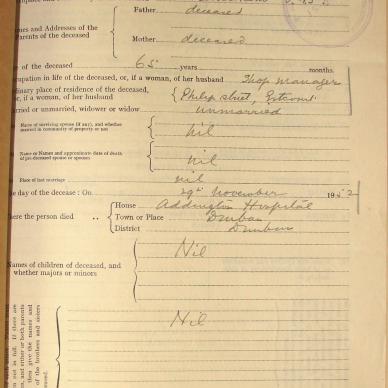 Father deceased
Names and Addresses of the
Parents of the deceased
Mother deceased
of the deceased 65 years months.
occupation in life of the deceased, or, if a woman, of her husband Shop manager
ordinary place of residence of the deceased, Philip Street, Estcourt
or, if a woman, of her husband
married or unmarried, widower or widow unmarried
Name of surviving spouse (if any), and whether
married in community of property or not nil
Name or Names and approximate date of death
of pre-deceased spouse or spouses nil
Place of last marriage nil
The day of the decease: On 29th November 1952
House Addington Hospital
Where the person died .. Town or Place Durban
District Durban
Names of children of deceased, and
whether majors or minors
Nil
Nil